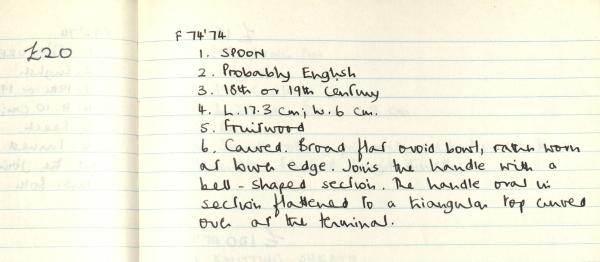 £20
F 74'74
1. SPOON
2. Probably English
3. 18th or 19th Century
4. L. 17.3 cm; W. 6 cm.
5. Fruitwood
6. Carved. Broad flat ovoid bowl, rather worn
at lower edge. Joins the handle with a
bell-shaped section. The handle oval in
section flattened to a triangular top curved
over at the terminal.